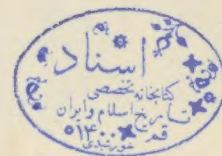 اسناد
کتابخانه تخصصی
تاریخ اسلام و ایران
قم
۱۴۰۰
خورشیدی